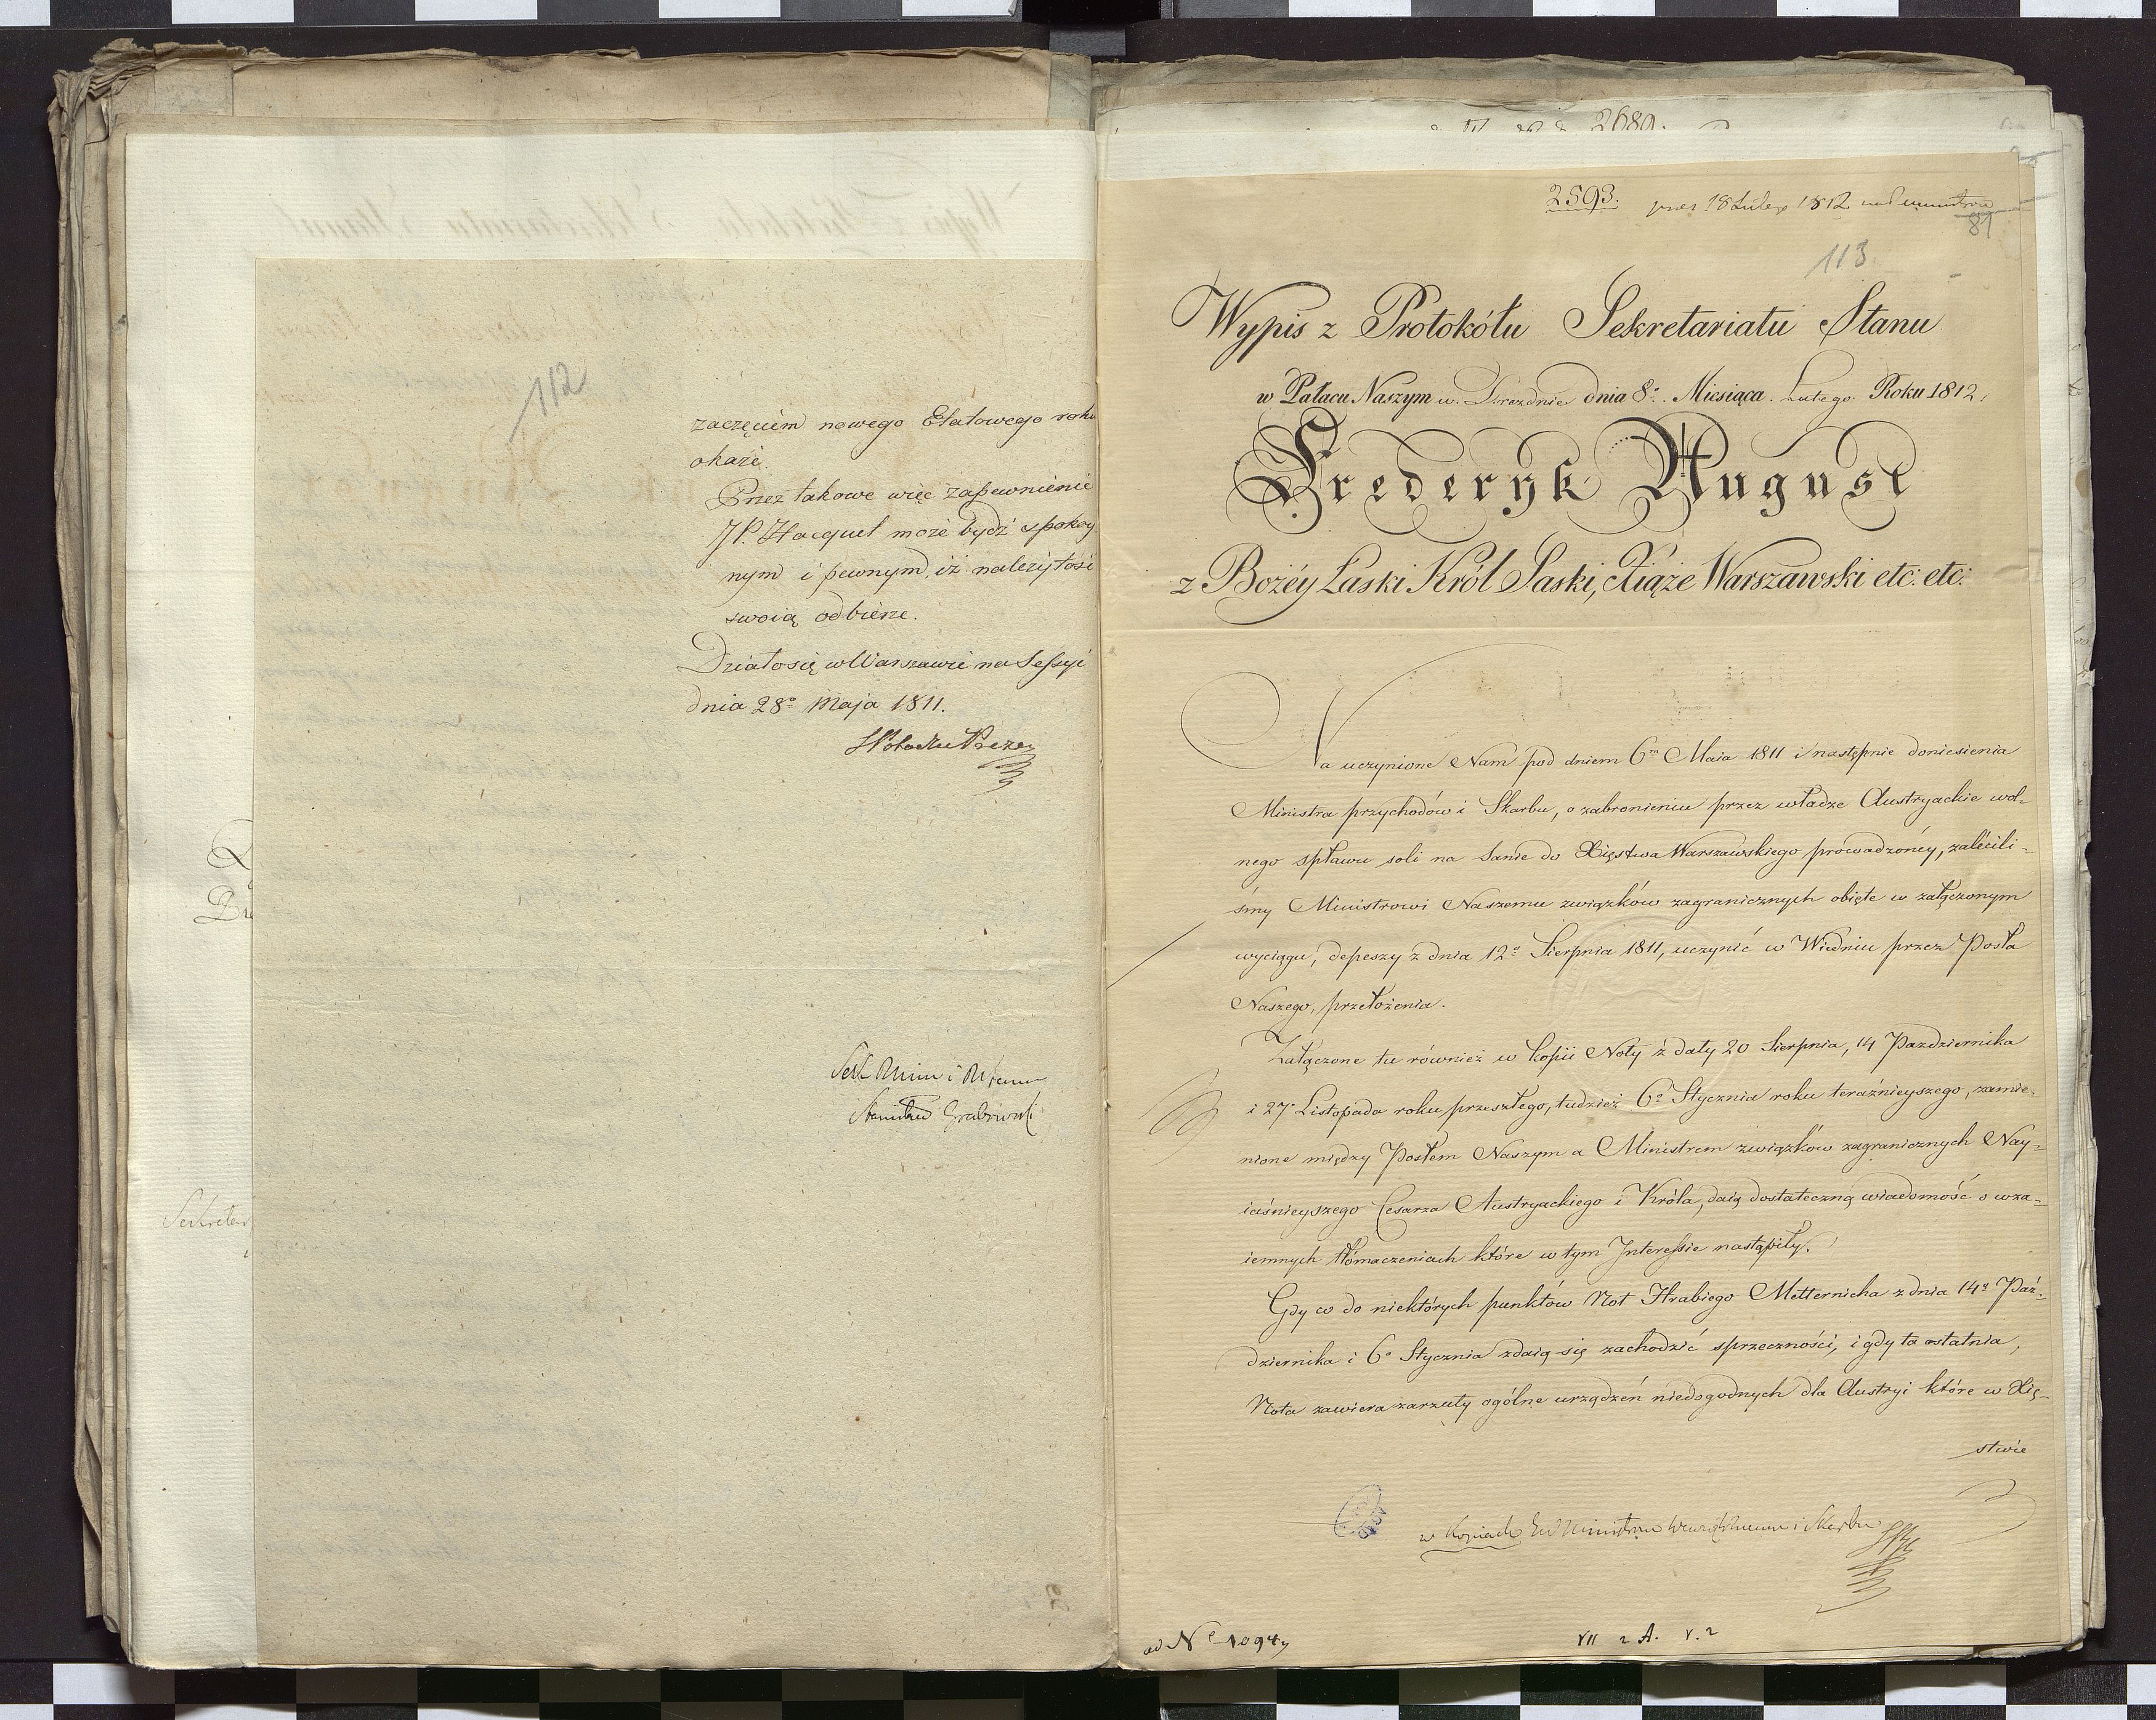 112
zaczęciem nowego Etatowego roku
okaże.
Przez takowe więc zapewnienie
JP. Hacquet może bydź spokoy
nym i pewnym, iż należytość
swoią odbierze.
Działo się w Warszawie na Sessyi
dnia 28º Maja 1811.
Stanisław Grabowski
Sekretar
2680.
2593. 18 Lutego 1812
81
113
Wypis z Protokółu Sekretariatu Stanu
w Pałacu Naszym w Dreznie dnia 8º Miesiąca Lutego Roku 1812.
Frederyk August
z Bożéy Łaski Król Saski, Xiąże Warszawski etc: etc:
Na uczynione Nam pod dniem 6m Maia 1811 i następnie doniesienia
Ministra przychodów i Skarbu, o zabronieniu przez władze Austryackie wol=
nego spławu soli na Sanie do Xięstwa Warszawskiego prowadzoney, zalécili=
śmy Ministrowi Naszemu związków zagranicznych obięte w załączonym
wyciągu, depeszy z dnia 12º Sierpnia 1811, uczynić w Wiedniu przez Posła
Naszego, przełożenia.
Załączone tu również w kopii Noty z daty 20 Sierpnia, 14 Pazdziernika
i 27º Listopada roku przeszłego, tudzież 6º Stycznia roku teraźnieyszego, zamie=
nione między Posłem Naszym a Ministrem związków zagranicznych Nay=
iaśnieyszego Cesarza Austryackiego i Króla, daią dostateczną wiadomość o wza=
iemnych tłómaczeniach które w tym Interessie nastąpiły.
Gdy co do niektórych punktów Not Hrabiego Metternicha z dnia 14º Paź=
dziernika i 6º Stycznia zdaią się zachodzić sprzeczności, i gdy ta ostatnia,
Nota zawiera zarzuty ogólne urządzeń niedogodnych dla Austryi które w Xię=
stwie
w Kopiach i Skarbu
ad Nº 1094
VII 2 A. V. 2